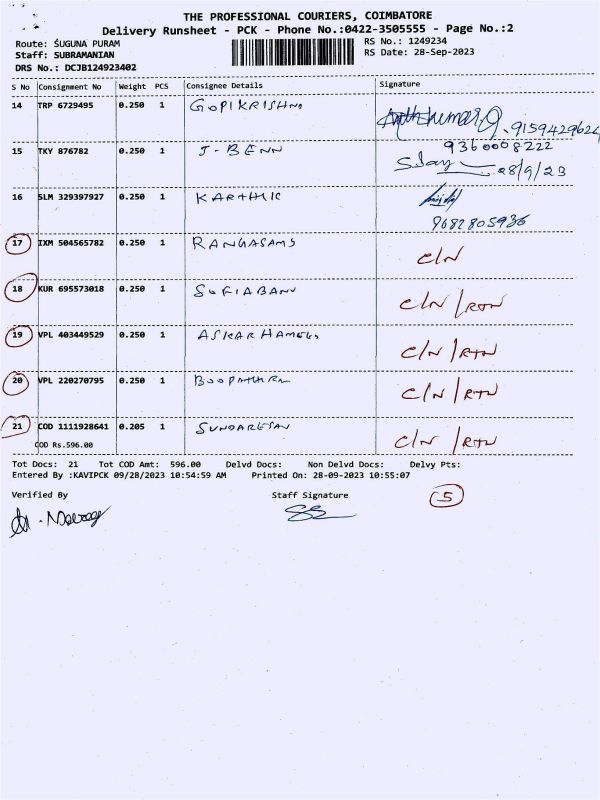 THE PROFESSIONAL COURIERS, COIMBATORE
Delivery Runsheet - PCK - Phone No.:0422-3505555 - Page No.:2
Route: SUGUNA PURAM
RS No.: 1249234
Staff: SUBRAMANIAN
RS Date: 28-Sep-2023
DRS No.: DCJB124923402
S No Consignment No Weight PCS Consignee Details Signature
14 TRP 6729495 0.250 1 GOPIKRISHNA
9159429624
15 TKY 876782 0.250 1 J-BENN 9360008222
28/9/23
16 SLM 329397927 0.250 1 KARTHIC
9682805936
17 IXM 504565782 0.250 1 RANGASAMY C/N
18 KUR 695573018 0.250 1 SOFIABANU C/N /RTN
19 VPL 403449529 0.250 1 ASKAR C/N /RTN
20 VPL 220270795 0.250 1 C/N /RTN
21 COD 1111928641 0.205 1 SUNDARESAN C/N /RTN
COD Rs.596.00
Tot Docs: 21 Tot COD Amt: 596.00 Delvd Docs: Non Delvd Docs: Delvy Pts:
Entered By :KAVIPCK 09/28/2023 10:54:59 AM Printed On: 28-09-2023 10:55:07
Verified By Staff Signature 5